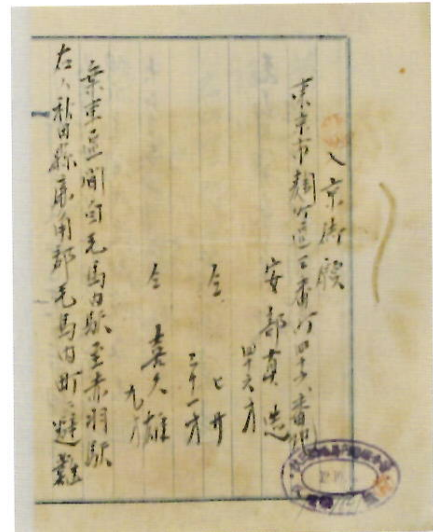 入京御願
東京市麹町區下二番町四十八番地
安部真造
四十六才
仝 ヒサ
三十一才
仝 喜久雄
九才
乗車區間自毛馬内駅至赤羽駅
右ハ秋田縣鹿角郡毛馬内町ヘ避難